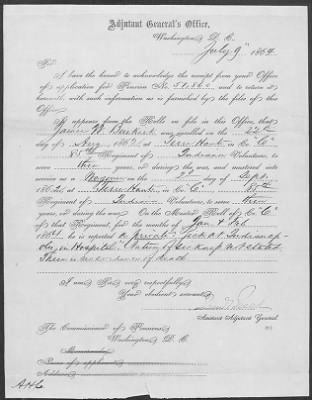 Adjutant General's Office,
Washington, D. C.
July 9th 1864
Sir:
I have the honor to acknowledge the receipt from your Office
of application for Pension No. 58,860, and to return it
herewith, with such information as is furnished by the files of this
Office.
It appears from the Rolls on file in this Office, that
James W. was enrolled on the 22nd
day of Aug 1862, at Terre Haute in Co. "C"
85th Regiment of Indiana Volunteers, to
serve three years, or during the war, and mustered into
service as a on the 2nd day of Sept,
1862, at Terre Haute, in Co. "C" 85th
Regiment of Indiana Volunteers, to serve three
years, or during the war. On the Muster Roll of Co. "C"
of that Regiment, for the months of Jan & Feb
186 , he is reported a private sick at Indianap-
olis, in Hospital. Nature of sickness not stated.
There is no evidence of death
I am, Sir, very respectfully,
Your obedient servant,
Assistant Adjutant General.
The Commissioner of Pensions,
Washington, D. C.
Memoranda:
Name of applicant,
Address